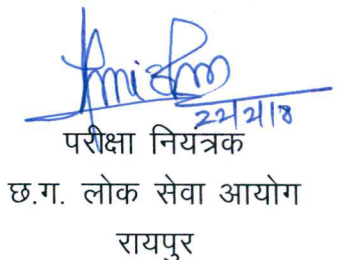 22/2/18
परीक्षा नियत्रक
छ.ग. लोक सेवा आयोग
रायपुर